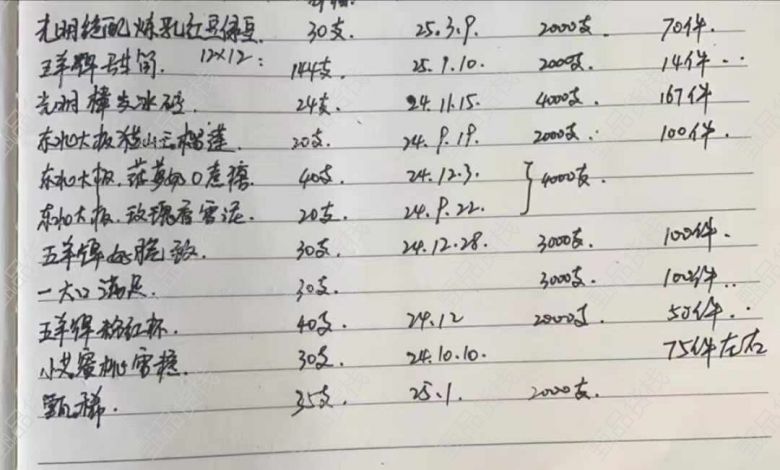 光明绝配炼乳红豆绿豆. 30支. 25.3.9. 2000支 70件.
五羊牌 12×12: 144支. 25.1.10. 2000支. 14件..
光明樟芝冰砖. 24支. 24.11.15. 4000支. 167件
东北大板猫山王榴莲. 20支. 24.9.19. 2000支.. 100件.
东北大板. 40支. 24.12.3. } 4000支.
东北大板.玫瑰香雪泥. 20支. 24.9.22.
五羊牌 30支. 24.12.28. 3000支. 100件.
一大口满足. 30支. 3000支. 100件..
五羊牌粉红杯. 40支. 24.12 2000支. 50件..
蜜桃雪糕. 30支. 24.10.10. 75件左右
甄稀. 35支. 25.1. 2000支.